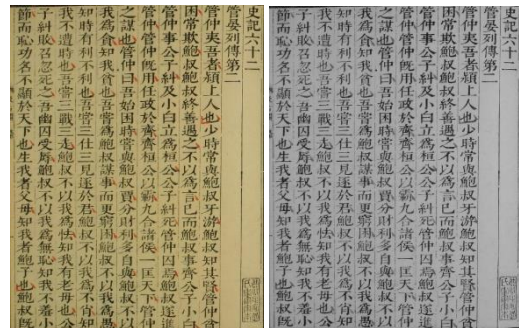 史記六十二
管晏列傳第二
管仲夷吾者潁上人也少時常與鮑叔牙游鮑叔知其賢管仲貧
困常欺鮑叔鮑叔終善遇之不以爲言已而鮑叔事齊公子小白
管仲事公子糾及小白立爲桓公公子糾死管仲囚焉鮑叔遂進
管仲管仲既用任政於齊齊桓公以霸九合諸侯一匡天下管仲
之謀也管仲曰吾始困時常與鮑叔賈分財利多自與鮑叔不以
我爲貪知我貧也吾嘗爲鮑叔謀事而更窮困鮑叔不以我爲愚
知時有利不利也吾嘗三仕三見逐於君鮑叔不以我爲不肖知
我不遭時也吾嘗三戰三走鮑叔不以我爲怯知我有老母也公
子糾敗召忽死之吾幽囚受辱鮑叔不以我爲無恥知我不羞小
節而恥功名不顯於天下也生我者父母知我者鮑子也鮑叔既
史記六十二
管晏列傳第二
管仲夷吾者潁上人也少時常與鮑叔牙游鮑叔知其賢管仲貧
困常欺鮑叔鮑叔終善遇之不以爲言已而鮑叔事齊公子小白
管仲事公子糾及小白立爲桓公公子糾死管仲囚焉鮑叔遂進
管仲管仲既用任政於齊齊桓公以霸九合諸侯一匡天下管仲
之謀也管仲曰吾始困時常與鮑叔賈分財利多自與鮑叔不以
我爲貪知我貧也吾嘗爲鮑叔謀事而更窮困鮑叔不以我爲愚
知時有利不利也吾嘗三仕三見逐於君鮑叔不以我爲不肖知
我不遭時也吾嘗三戰三走鮑叔不以我爲怯知我有老母也公
子糾敗召忽死之吾幽囚受辱鮑叔不以我爲無恥知我不羞小
節而恥功名不顯於天下也生我者父母知我者鮑子也鮑叔既